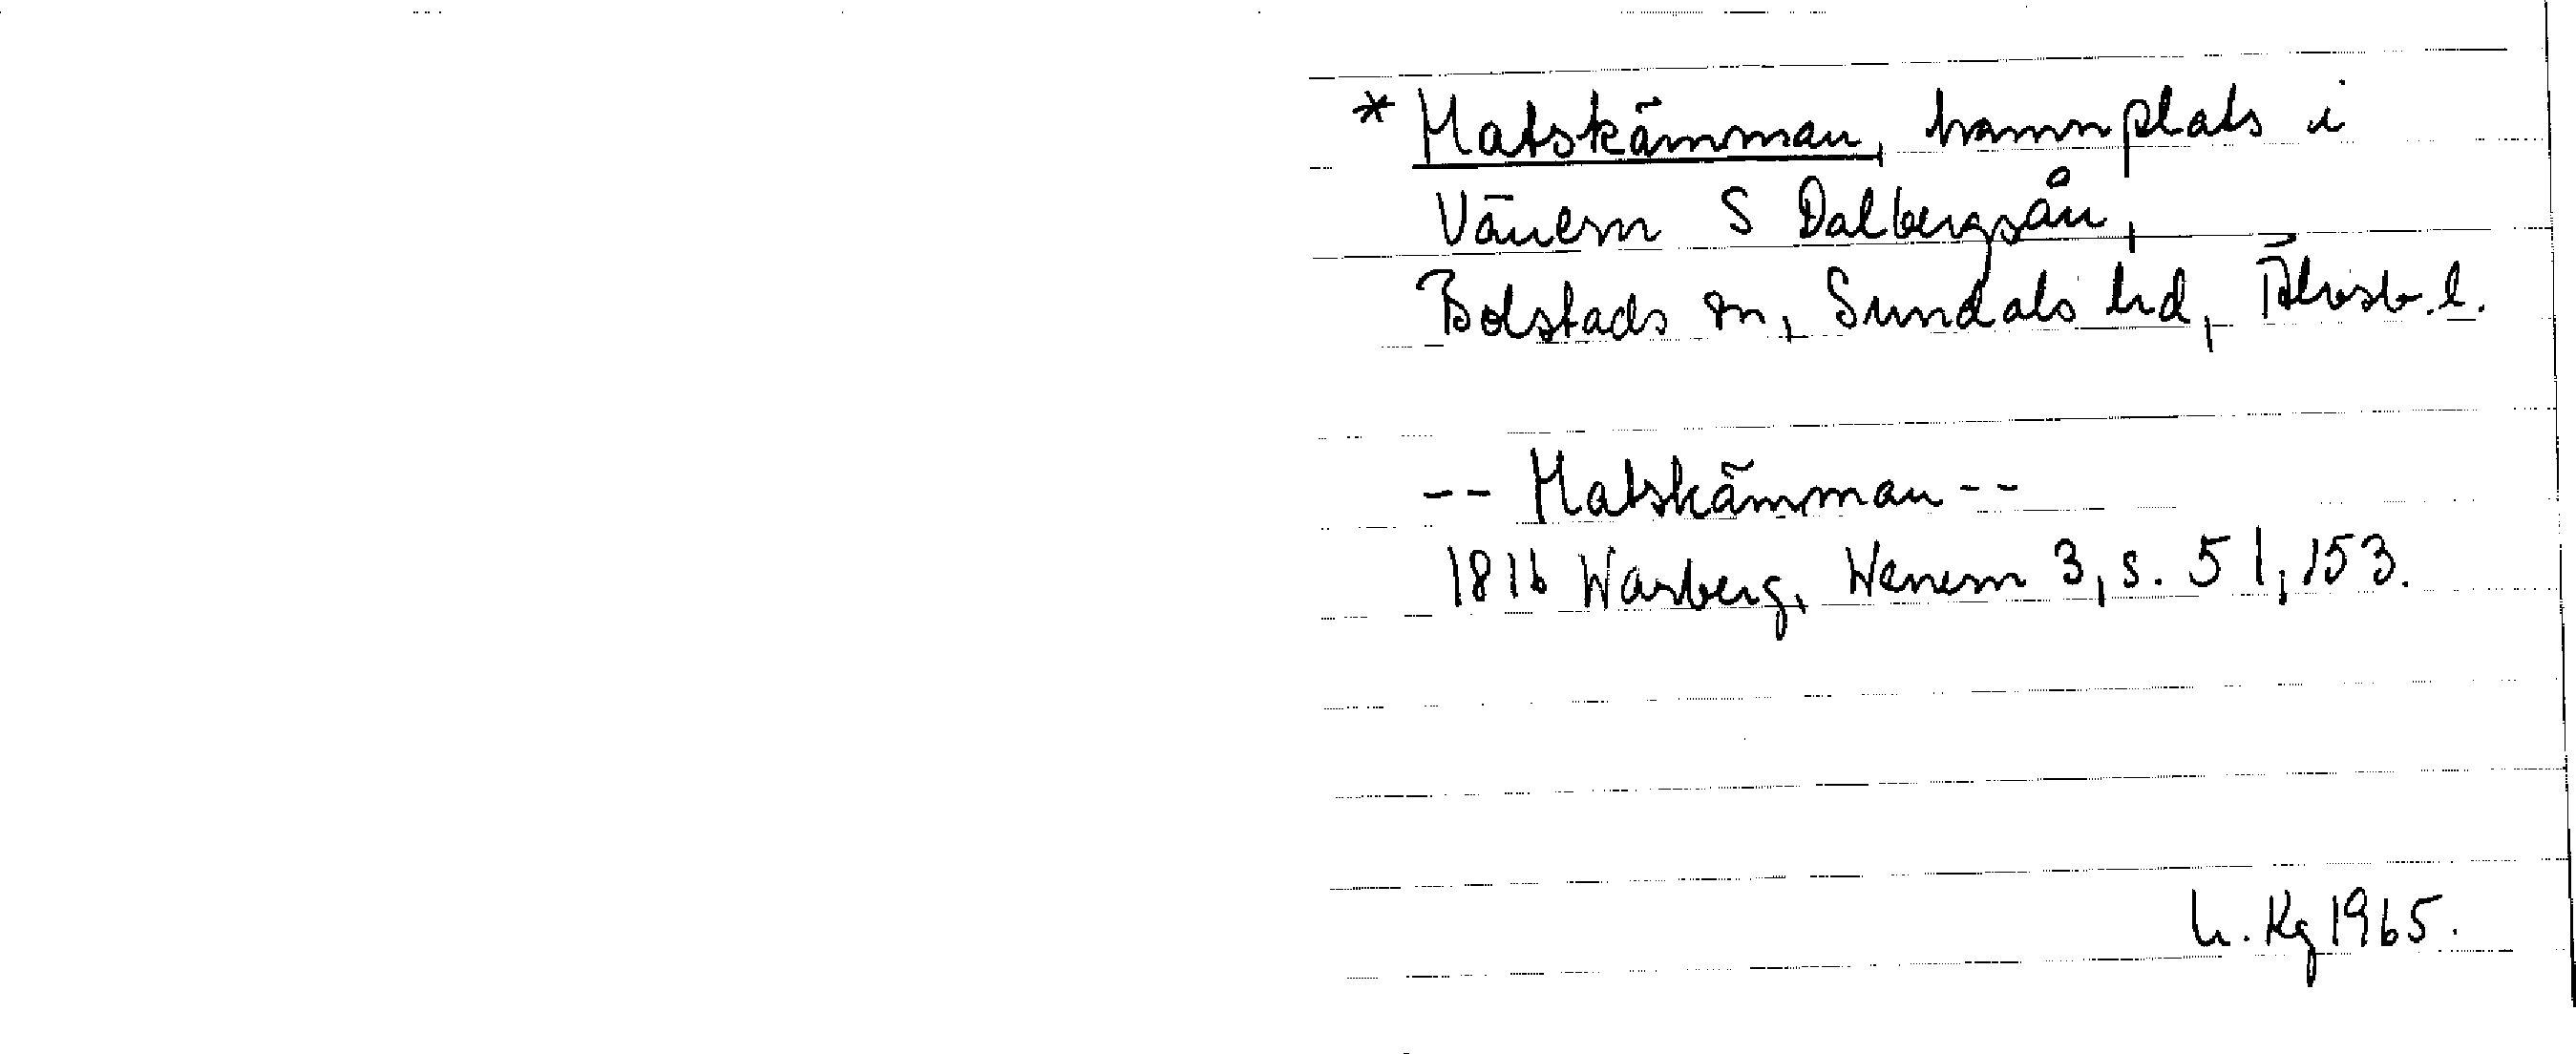 * Matskämman, hamnplats i
Vänern S Dalbergsån,
Bolstads sn, Sundals hd, Älvsb. l.
-- Matskämman --
1816 Warberg, Wenern 3, s. 51, 153.
h. Kg 1965.